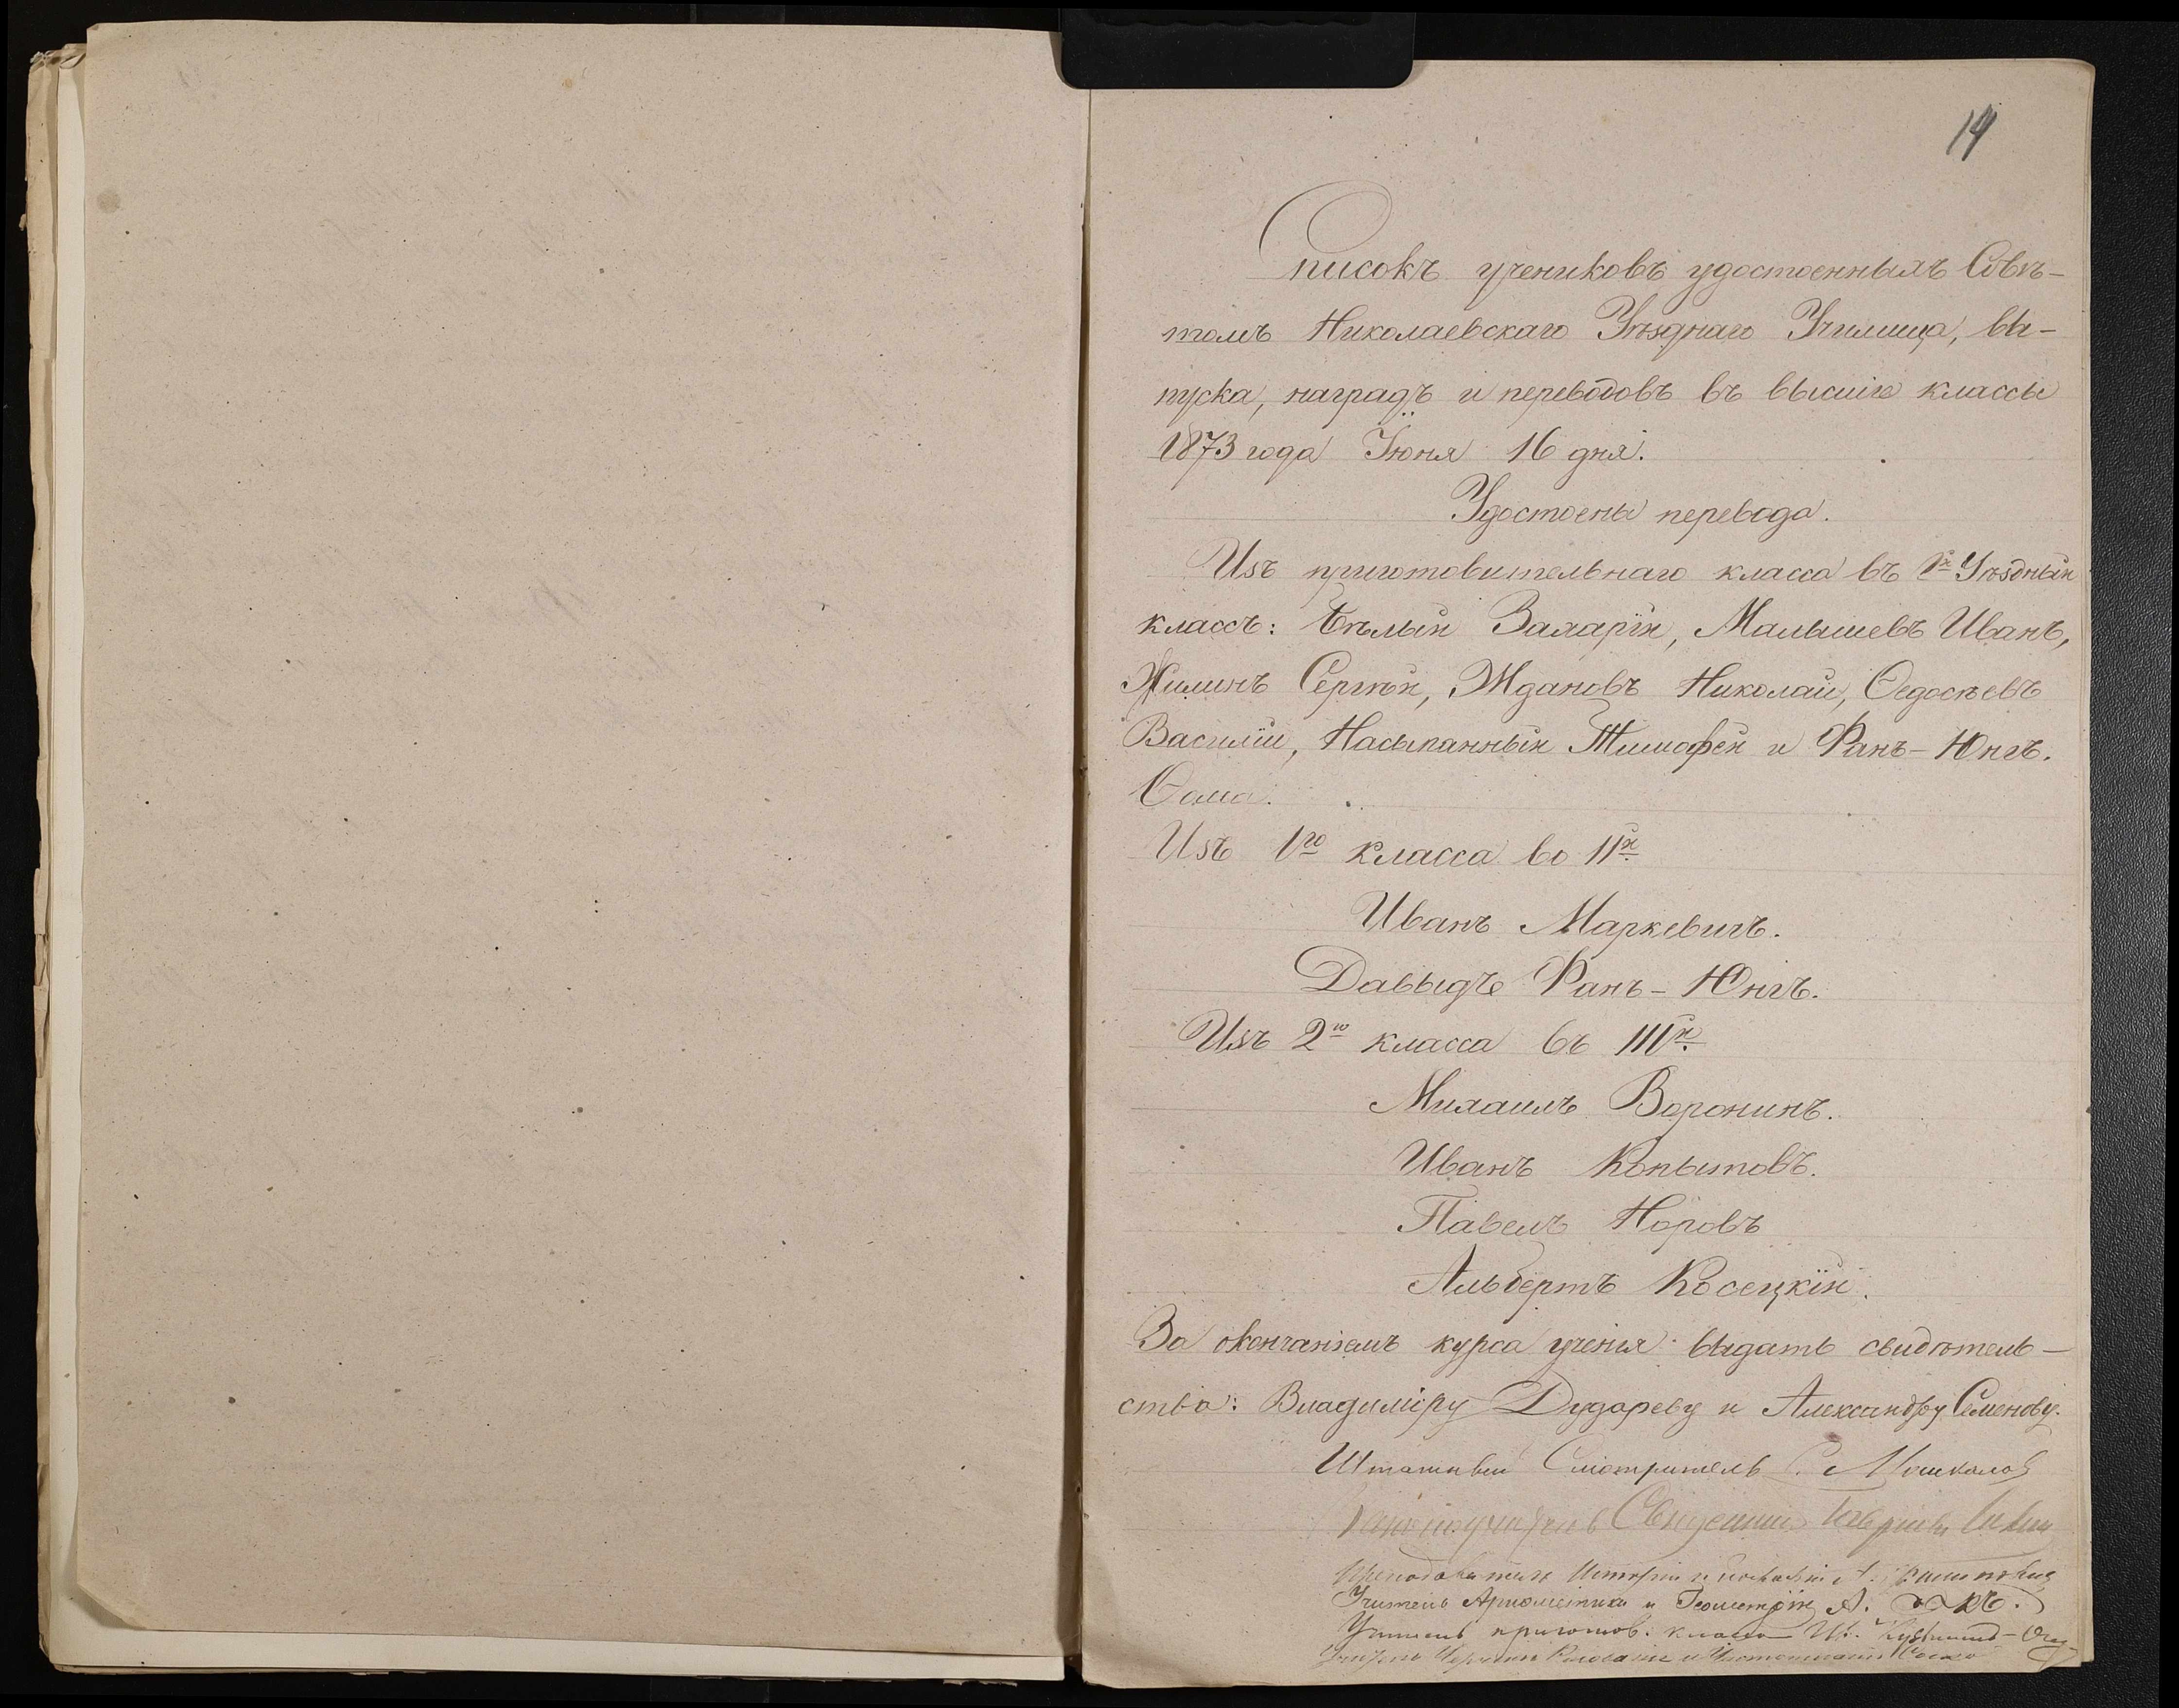 14
Списокъ учениковъ удостоенныхъ Совѣ-
томъ Николаевскаго Уѣзднаго Училища, вы-
пуска, наградъ и переводовъ въ высшіе классы
1873 года Іюня 16 дня.
Удостоены перевода.
Изъ приготовительнаго класса въ Iй Уѣздный
классъ: Бѣлый Захарій, Малышевъ Иванъ,
Жилинъ Сергѣй, Ждановъ Николай, Ѳедосѣевъ
Василій, Насыпанный Тимофей и Фанъ-Юнгъ.
Ѳома.
Изъ 1го класса во IIй
Иванъ Маркевичъ.
Давыдъ Фанъ-Юнгъ.
Изъ 2го класса въ IIIй
Михаилъ Воронинъ.
Иванъ Копытовъ.
Павелъ Норовъ
Альбертъ Косецкій.
За окончаніемъ курса ученія выдать свидѣтель-
ства: Владиміру Дудареву и Александру Семенову.
Штатный Смотритель С. Мошкалов
Законоучитель Священникъ
Преподаватель Исторіи и
Учитель Ариѳметики и Геометріи А.
Учитель приготов. класса Ив.
Учитель Черченія Рисованія и Чистописанія